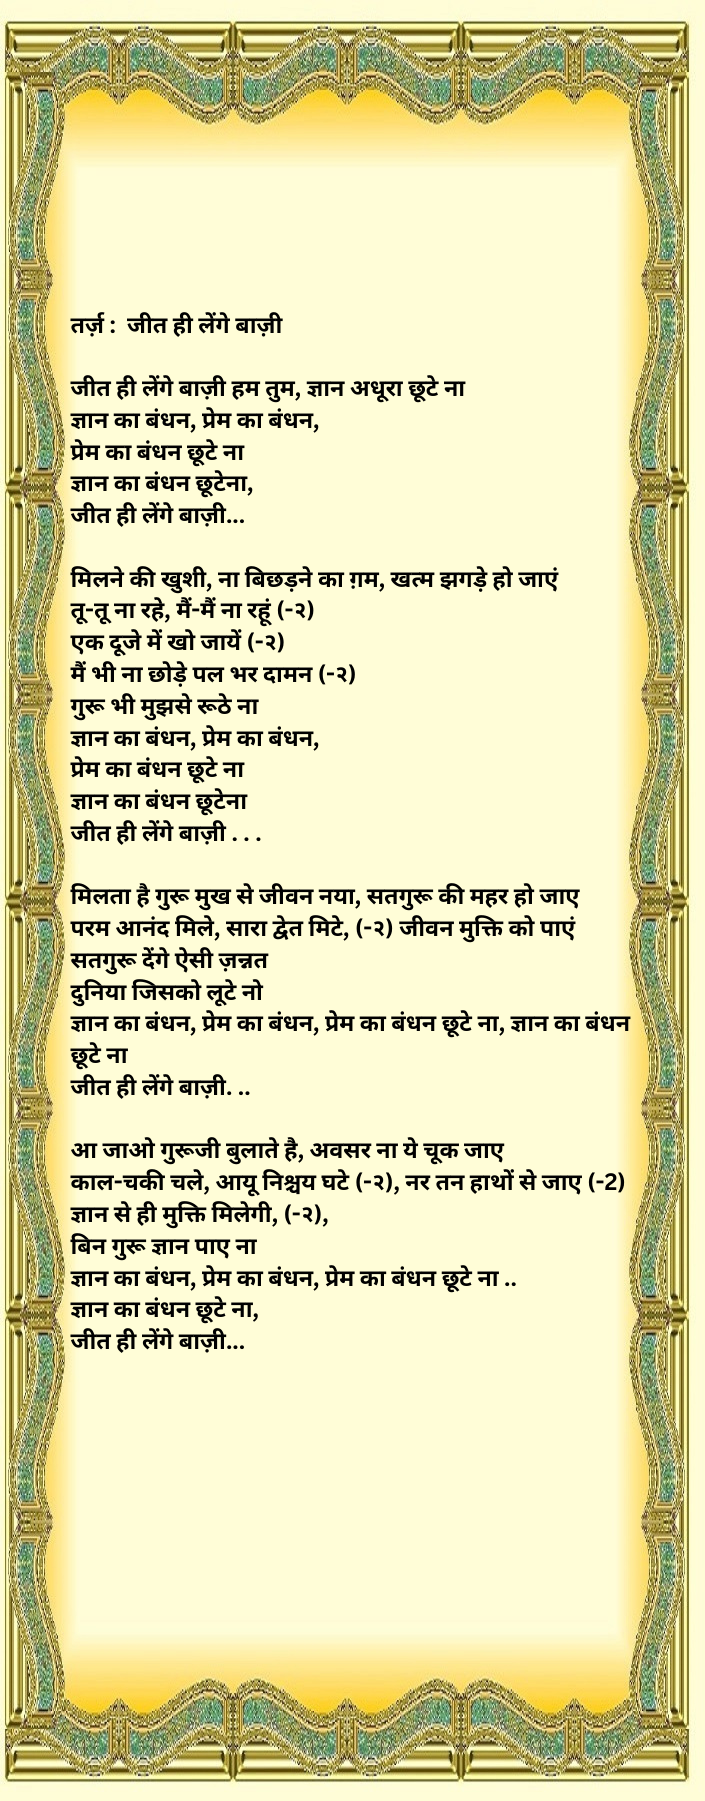 तर्ज़ :  जीत ही लेंगे बाज़ी
जीत ही लेंगे बाज़ी हम तुम, ज्ञान अधूरा छूटे ना
ज्ञान का बंधन, प्रेम का बंधन,
प्रेम का बंधन छूटे ना
ज्ञान का बंधन छूटेना,
जीत ही लेंगे बाज़ी...
मिलने की खुशी, ना बिछड़ने का ग़म, खत्म झगड़े हो जाएं
तू-तू ना रहे, मैं-मैं ना रहूं (-२)
एक दूजे में खो जायें (-२)
मैं भी ना छोड़े पल भर दामन (-२)
गुरू भी मुझसे रूठे ना
ज्ञान का बंधन, प्रेम का बंधन,
प्रेम का बंधन छूटे ना
ज्ञान का बंधन छूटेना
जीत ही लेंगे बाज़ी . . .
मिलता है गुरू मुख से जीवन नया, सतगुरू की महर हो जाए
परम आनंद मिले, सारा द्वेत मिटे, (-२) जीवन मुक्ति को पाएं
सतगुरू देंगे ऐसी ज़न्नत
दुनिया जिसको लूटे नो
ज्ञान का बंधन, प्रेम का बंधन, प्रेम का बंधन छूटे ना, ज्ञान का बंधन
छूटे ना
जीत ही लेंगे बाज़ी. ..
आ जाओ गुरूजी बुलाते है, अवसर ना ये चूक जाए
काल-चकी चले, आयू निश्चय घटे (-२), नर तन हाथों से जाए (-2)
ज्ञान से ही मुक्ति मिलेगी, (-२),
बिन गुरू ज्ञान पाए ना
ज्ञान का बंधन, प्रेम का बंधन, प्रेम का बंधन छूटे ना ..
ज्ञान का बंधन छूटे ना,
जीत ही लेंगे बाज़ी...